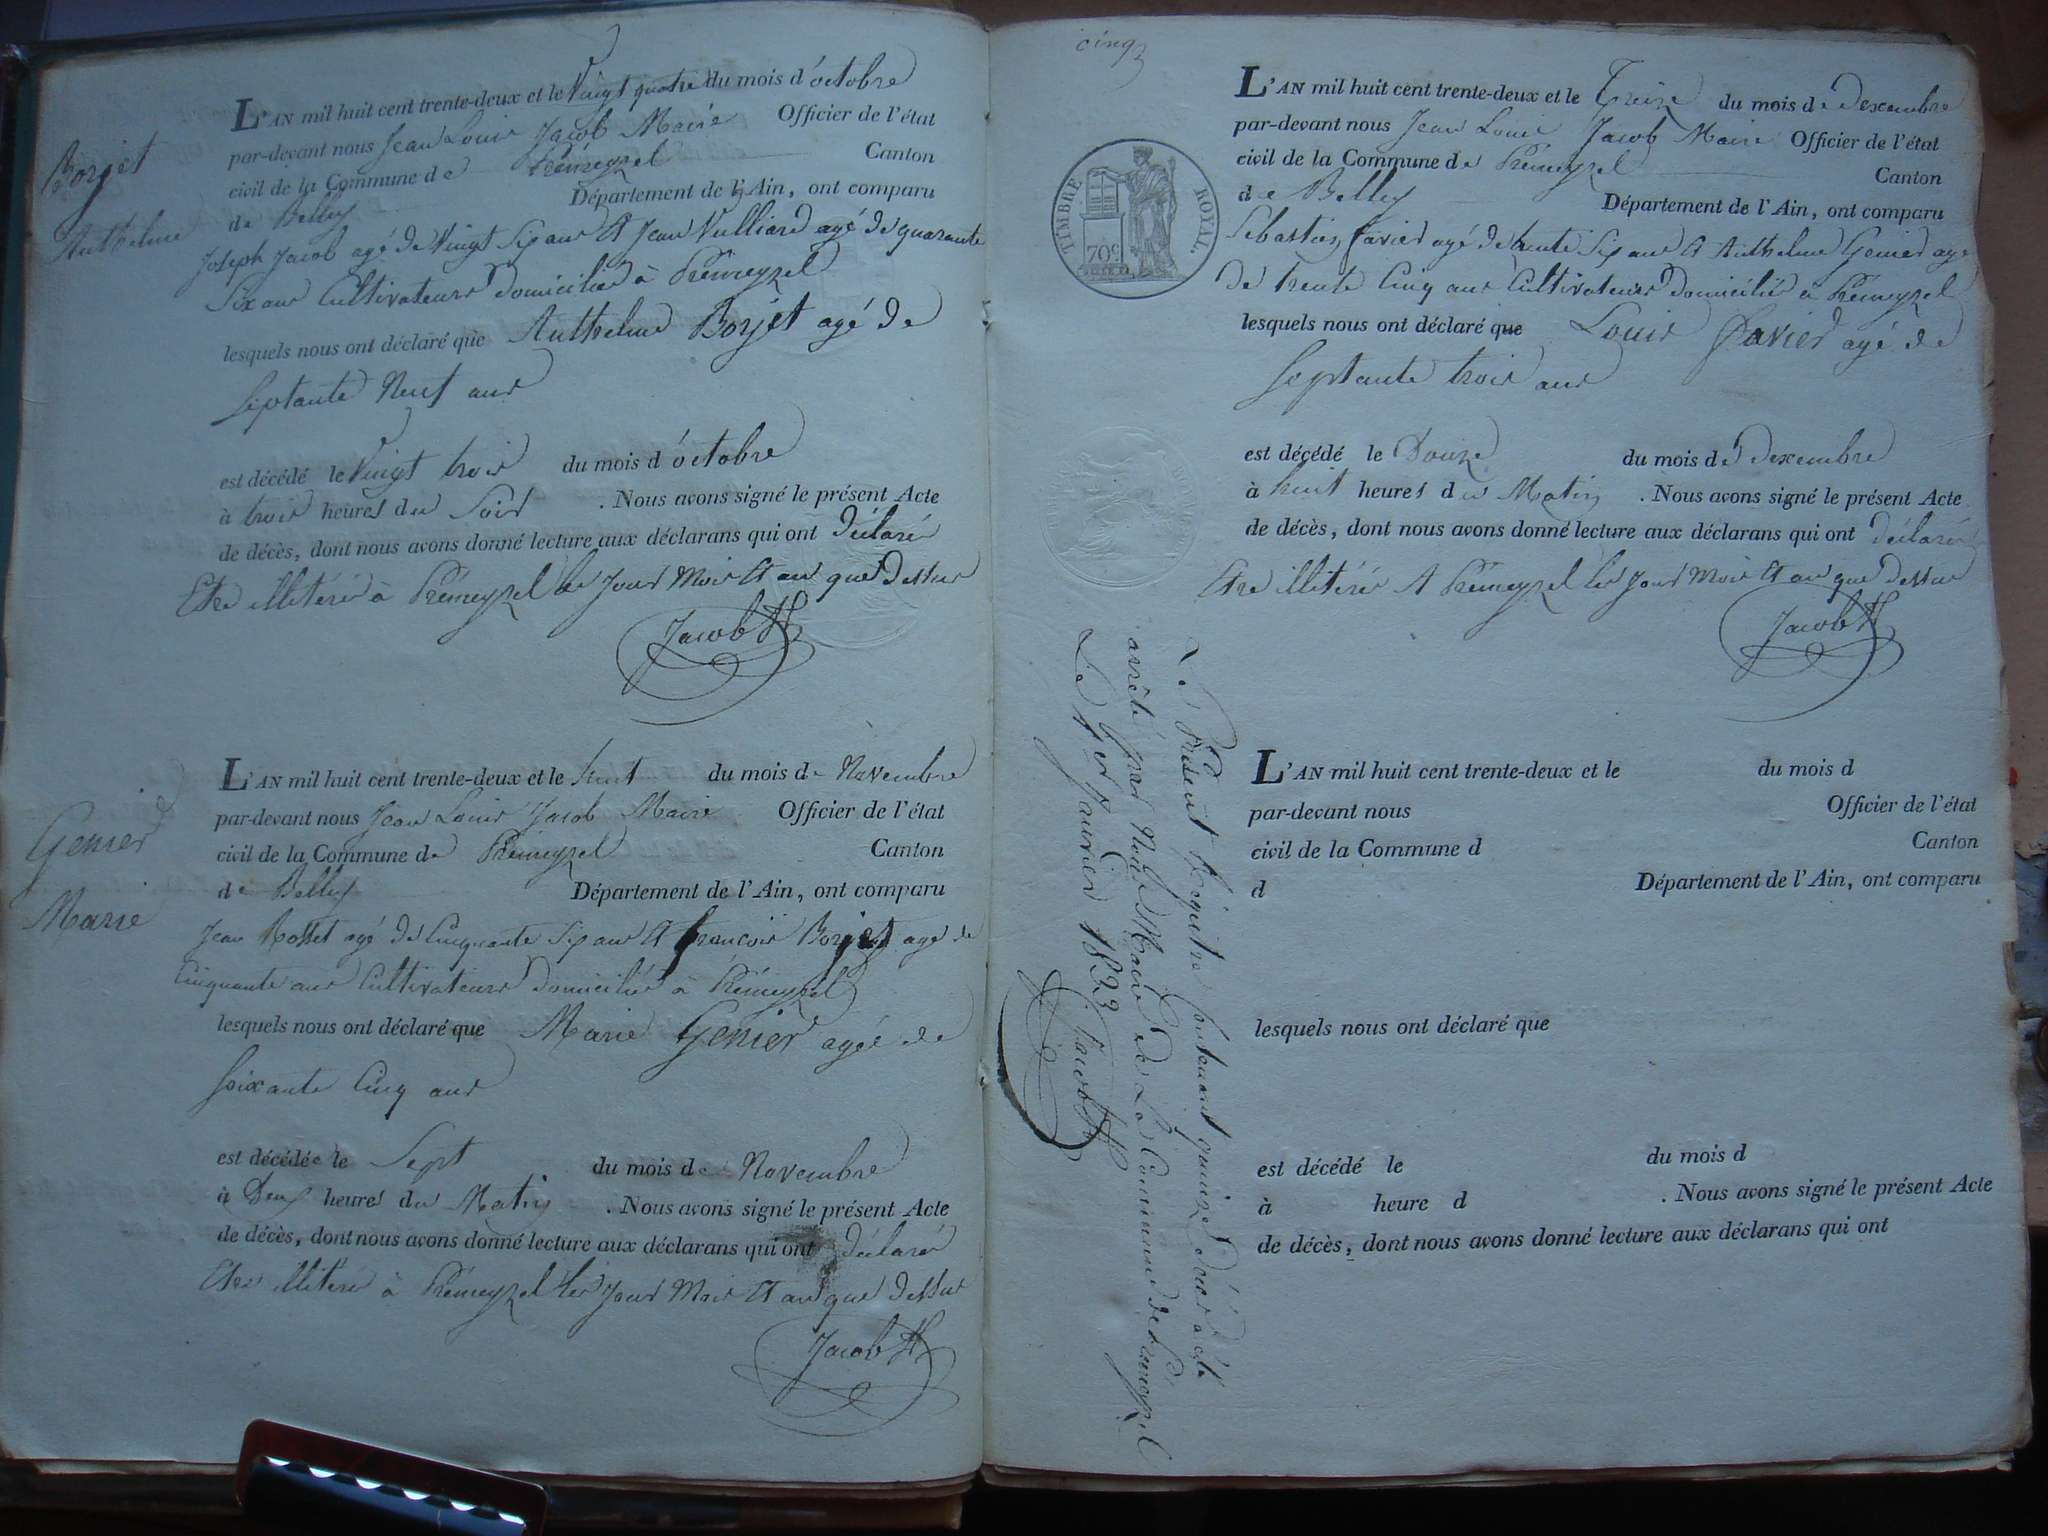 Borjet
Anthelme
L'AN mil huit cent trente-deux et le Vingt quatre du mois d'octobre
par-devant nous Jean Louis Jacob Maire Officier de l'état
civil de la Commune de Prémeyzel Canton
de Belley Département de l'Ain, ont comparu
Joseph Jacob agé de Vingt Six ans et Jean Vulliard agé de quarante
Six ans Cultivateurs domiciliés à Prémeyzel
lesquels nous ont déclaré que Anthelme Borjet agé de
Septante Neuf ans
est décédé le Vingt trois du mois d'octobre
à trois heures du Soir . Nous avons signé le présent Acte
de décès, dont nous avons donné lecture aux déclarans qui ont déclaré
Etre illitéré à Prémeyzel les Jour Mois et an que dessus
Jacob
Genier
Marie
L'AN mil huit cent trente-deux et le huit du mois de Novembre
par-devant nous Jean Louis Jacob Maire Officier de l'état
civil de la Commune de Prémeyzel Canton
de Belley Département de l'Ain, ont comparu
Jean Rosset agé de Cinquante Six ans et francois Borjet agé de
Cinquante ans Cultivateurs domiciliés à Prémeyzel
lesquels nous ont déclaré que Marie Genier agée de
Soixante Cinq ans
est décédée le Sept du mois de Novembre
à Deux heures du Matin . Nous avons signé le présent Acte
de décès, dont nous avons donné lecture aux déclarans qui ont déclaré
Etre illitéré à Prémeyzel les Jour Mois et an que dessus
Jacob
cinq
TIMBRE ROYAL
70c
L'AN mil huit cent trente-deux et le Treize du mois de Dexembre
par-devant nous Jean Louis Jacob Maire Officier de l'état
civil de la Commune de Prémeyzel Canton
de Belley Département de l'Ain, ont comparu
Sebastien favier agé de trente Six ans et Anthelme Genier agé
de trente Cinq ans Cultivateurs domiciliés à Prémeyzel
lesquels nous ont déclaré que Louis favier agé de
Septante trois ans
est décédé le Douze du mois de Dexembre
à huit heures du Matin . Nous avons signé le présent Acte
de décès, dont nous avons donné lecture aux déclarans qui ont déclaré
Etre illitéré A Prémeyzel les Jour Mois et an que dessus
Jacob
Le Présent Régistre Contenant quinze
arrêté par Nous Maire de La Commune de Prémeyzel
Le 1er Janvier 1823 Jacob
L'AN mil huit cent trente-deux et le du mois d
par-devant nous Officier de l'état
civil de la Commune d Canton
d Département de l'Ain, ont comparu
lesquels nous ont déclaré que
est décédé le du mois d
à heure d . Nous avons signé le présent Acte
de décès, dont nous avons donné lecture aux déclarans qui ont